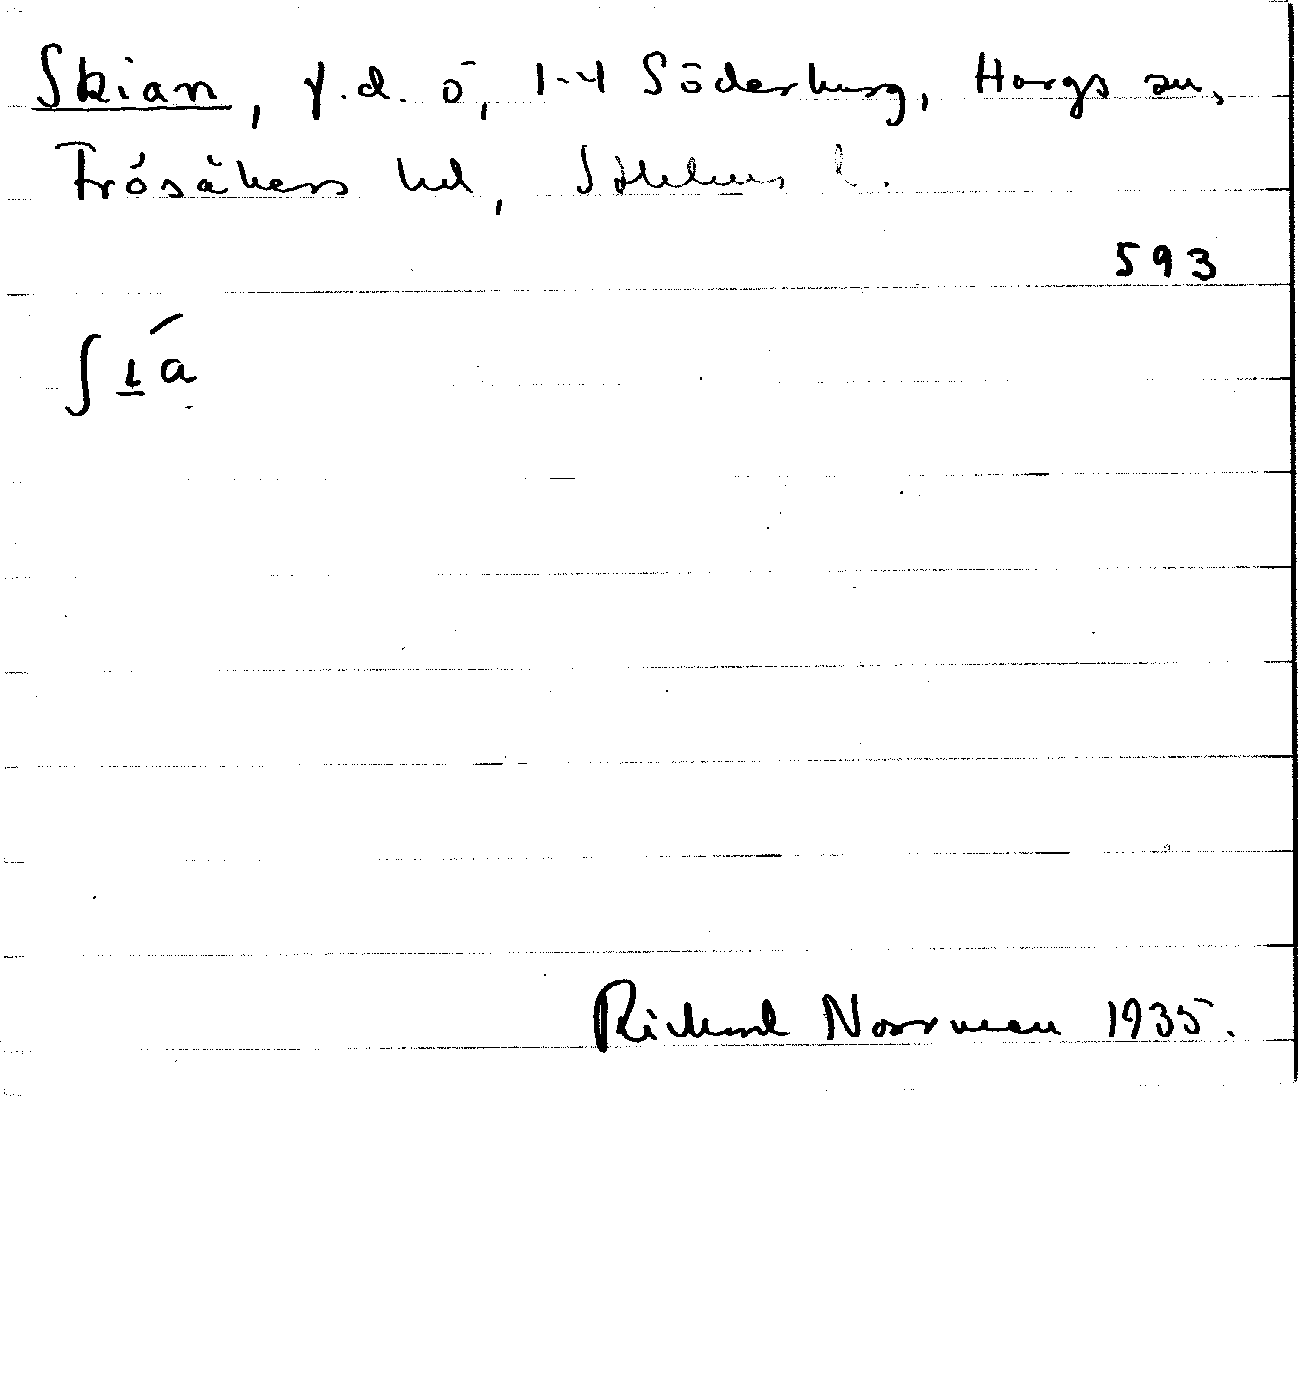 Skian, f.d. ö, 1-4 Söderburg, Hargs sn,
Frösåkers hd, Sthlms l.
593
ʃɩ́a
Rickard Norrman 1935.